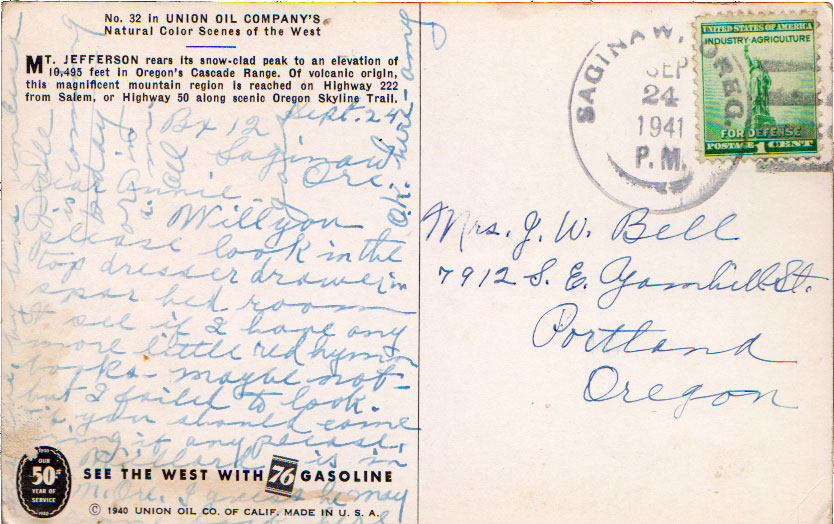 No. 32 in UNION OIL COMPANY'S
Natural Color Scenes of the West
MT. JEFFERSON rears its snow-clad peak to an elevation of
10,495 feet in Oregon's Cascade Range. Of volcanic origin,
this magnificent mountain region is reached on Highway 222
from Salem, or Highway 50 along scenic Oregon Skyline Trail.
Bx 12 Sept. 24,
Saginaw,
Ore.
Dear Annie
Will you
please look in the
top dresser drawer in
spar bed room
& see if I have any
more little red hymn
books - maybe not -
but I failed to look.
if you should come
bring it any please.
is in
Ore. I guess he may
O.K. here
SEE THE WEST WITH 76 GASOLINE
OUR
50th
YEAR OF
SERVICE
1940
© 1940 UNION OIL CO. OF CALIF. MADE IN U. S. A.
SAGINAW, OREG.
SEP
24
1941
P. M.
UNITED STATES OF AMERICA
INDUSTRY-AGRICULTURE
FOR DEFENSE
POSTAGE 1 CENT
Mrs. J. W. Bell
7912 S. E. Yamhill St.
Portland
Oregon